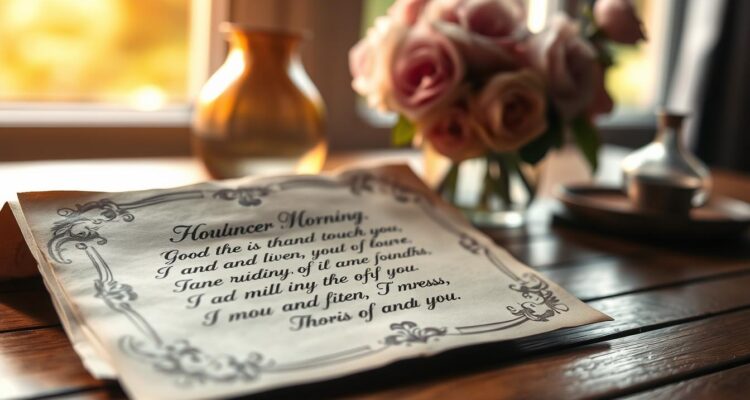 Houluncer Morning.
Good the is thand touch you,
I and and liven, yout of louve.
Tane ruidiny. of it ame foundhs.
I ad mill iny the ofƒ you.
I mou and fiten, I mress,
Thoris of andu you.